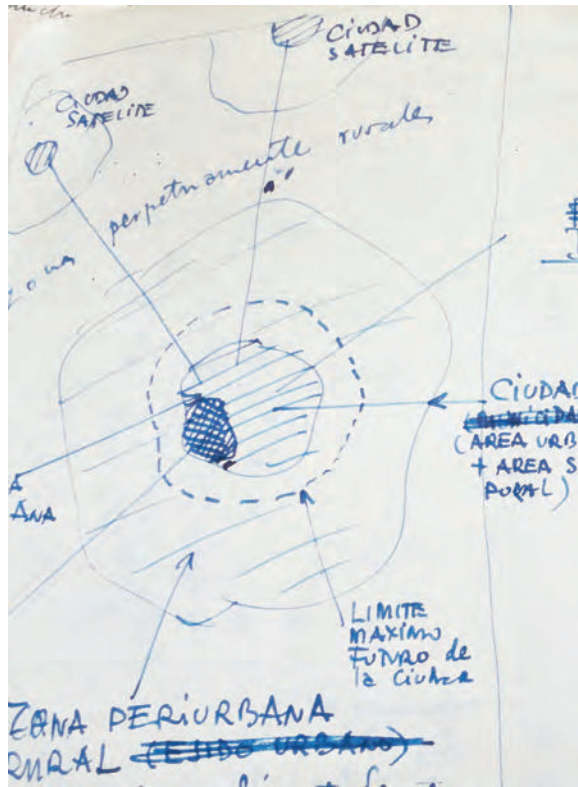 CIUDAD
SATELITE
CIUDAD
SATELITE
zona perpetuamente rurales
CIUDAD
(AREA URB
+ AREA S
RURAL)
A
ANA
LIMITE
MAXIMO
FUTURO de
la CIUDAD
ZONA PERIURBANA
RURAL (EJIDO URBANO)